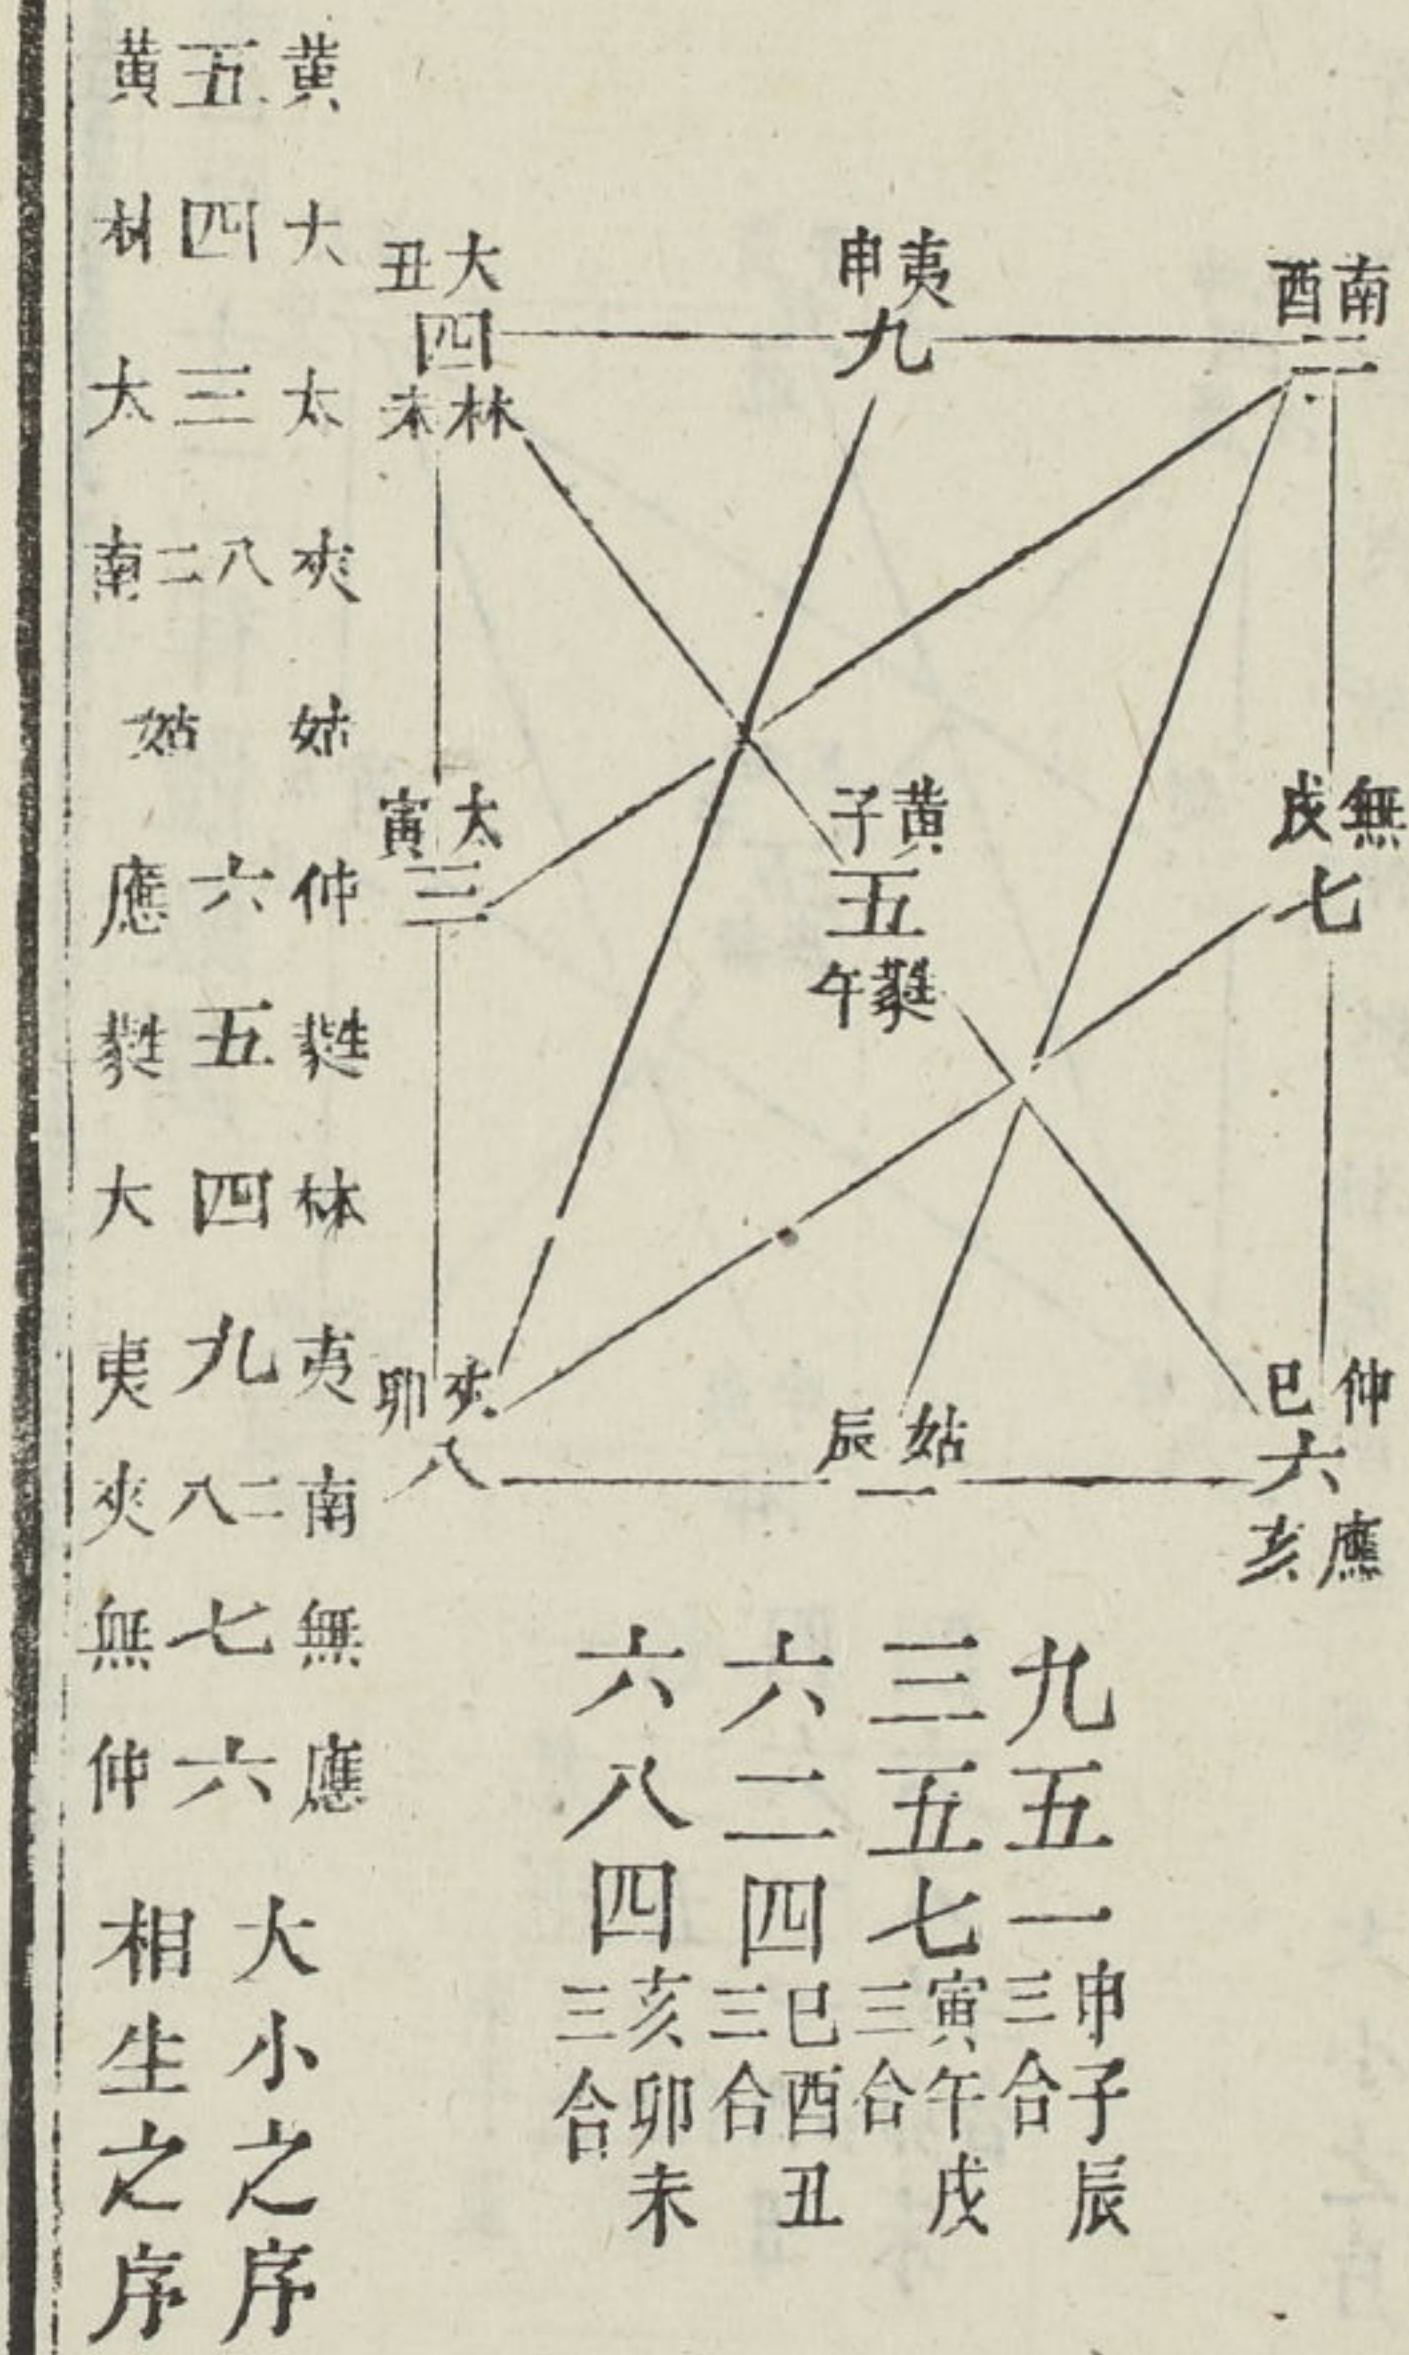 南酉
二
夷申
九
大丑
四
林未
無戌
七
黃子
五
蕤午
太寅
三
仲巳
六
應亥
姑辰
一
夾卯
八
九五一申子辰三合
三五七寅午戌三合
六二四巳酉丑三合
六八四亥卯未三合
黃大太夾姑仲蕤林夷南無應大小之序
五四三八二六五四九二八七六
黃林太南姑應蕤大夷夾無仲相生之序